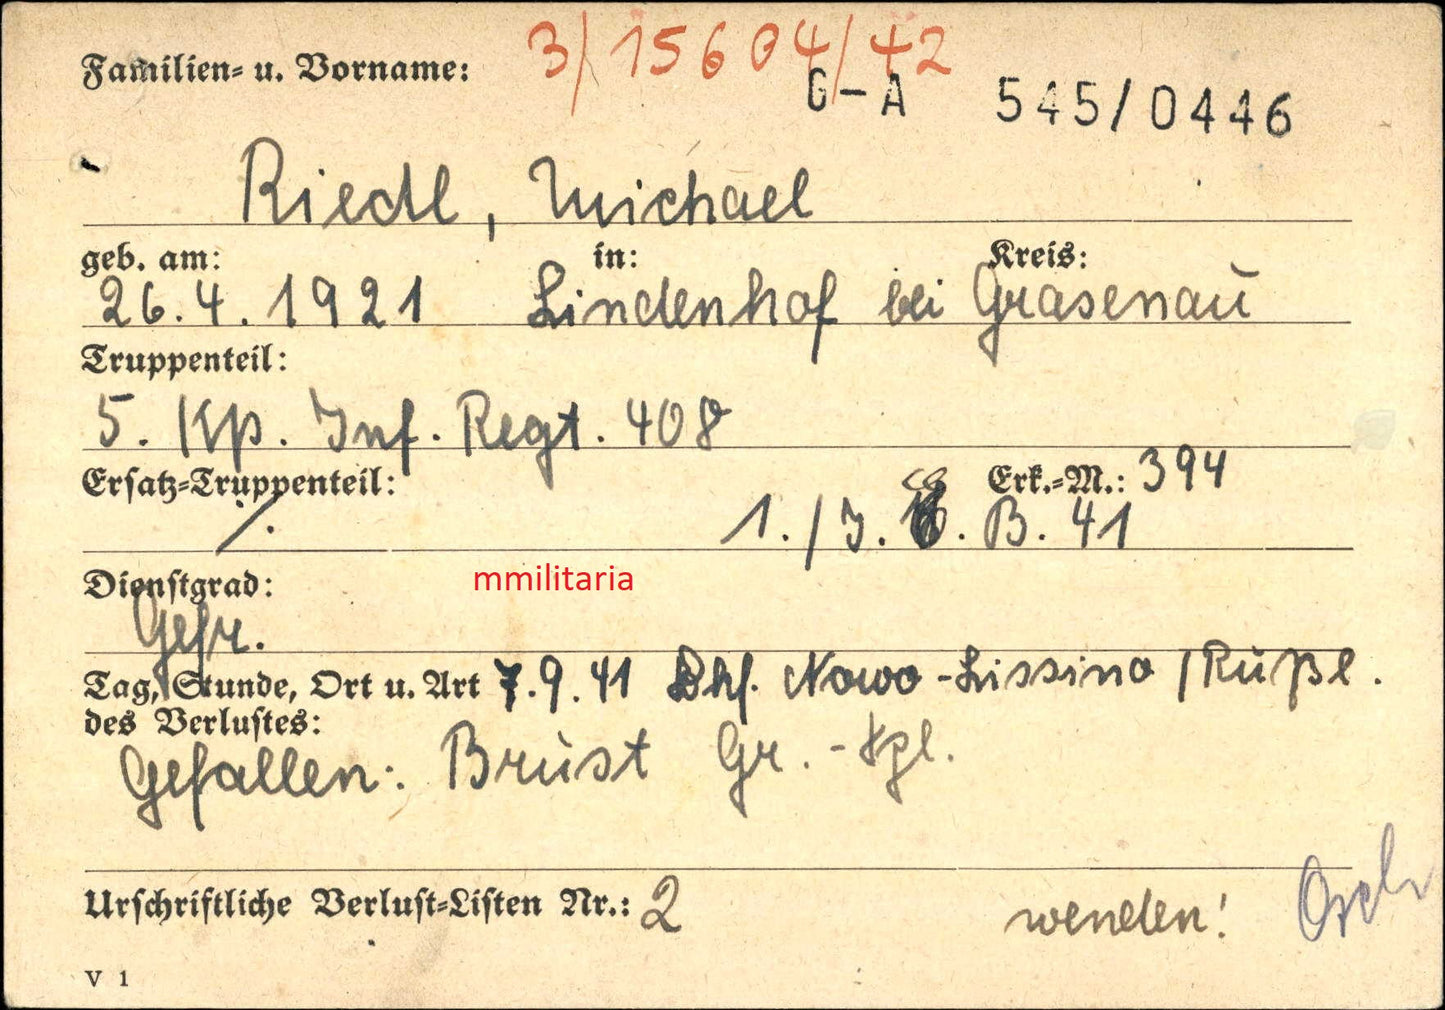 3/15604/42
Familien- u. Vorname:
G-A 545/0446
Riedl, Michael
geb. am: in: Kreis:
26.4.1921 Lindenhof bei Grasenau
Truppenteil:
5. Kp. Inf. Regt. 408
Ersatz-Truppenteil: Erk.-M.: 394
./. 1./J. B. 41
Dienstgrad:
mmilitaria
Gefr.
Tag, Stunde, Ort u. Art 7.9.41 Bhf. Nowo-Lissino /Rußl.
des Verlustes:
Gefallen: Brust Gr.-Spl.
Urschriftliche Verlust-Listen Nr.: 2
wenden!
V 1